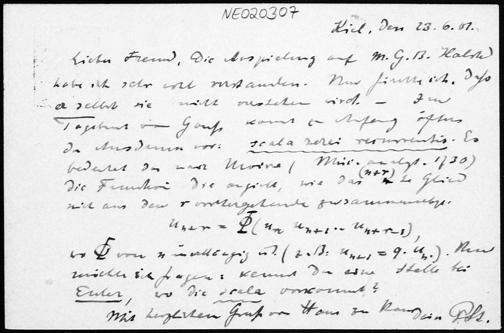 NE020307
Kiel, den 23.6.01.
Lieber Freund, Die Anspielung auf M.G.B. Halsted
habe ich sehr wohl verstanden. Nur fürchte ich, daß
er selbst sie nicht verstehen wird. — Im
Tagebuch von Gauss kommt zu Anfang öfters
der Ausdruck vor: scala seriei recurrentis. Es
bedeutet das nach Moivre (Misc. analyt. 1730)
die Funktion die angiebt, wie das (n+r)te Glied
sich aus den r vorhergehenden zusammensetzt.
u_{n+r} = Φ(u_n, u_{n+1} … u_{n+r-1}),
wo Φ von n unabhängig ist. (z.B. u_{n+1} = q · u_n). Nun
möchte ich fragen: kennst Du eine Stelle bei
Euler, wo die scala vorkommt?
Mit herzlichem Gruß von Haus zu Haus Dein P. St.